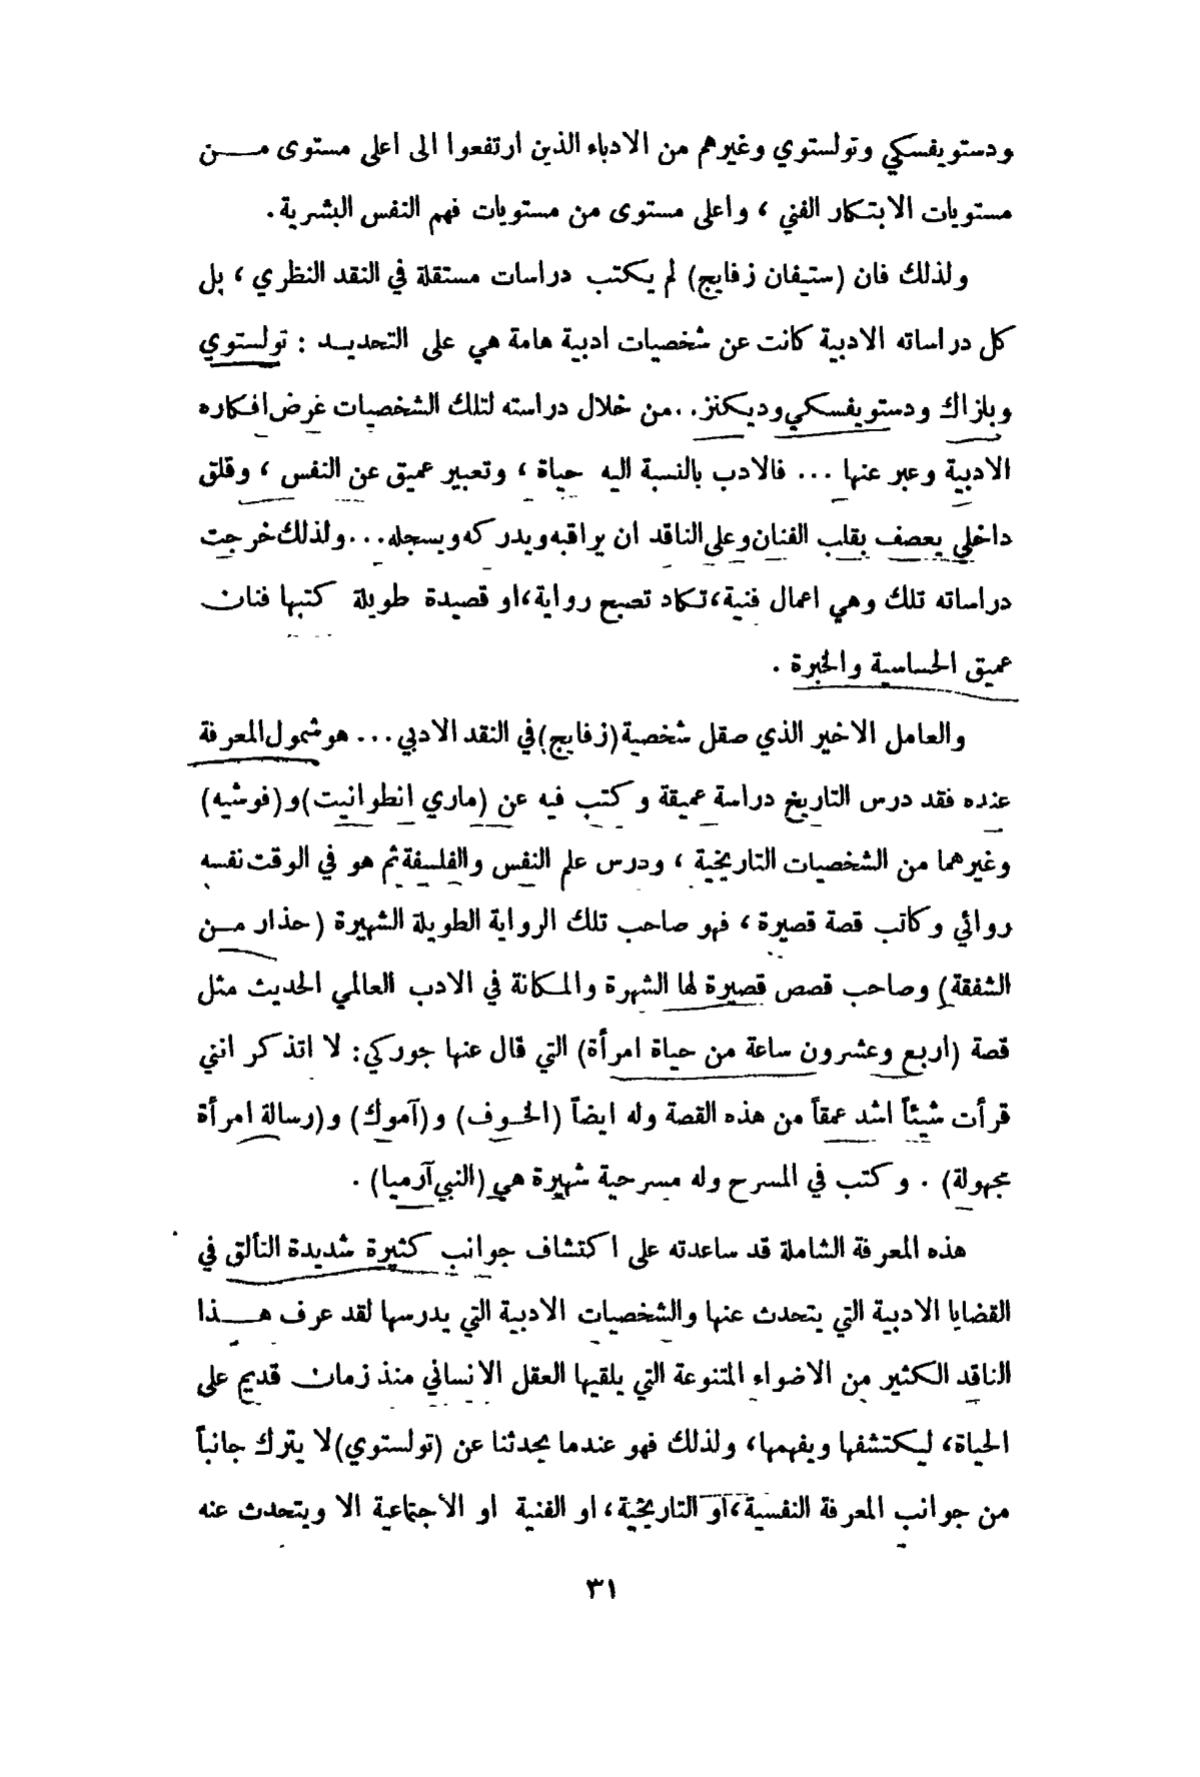 ودستويفسكي وتولستوي وغيرهم من الادباء الذين ارتفعوا الى اعلى مستوى مـــن
مستويات الابتكار الفني ، واعلى مستوى من مستويات فهم النفس البشرية.
ولذلك فان (ستيفان زفايج) لم يكتب دراسات مستقلة في النقد النظري ، بل
كل دراساته الادبية كانت عن شخصيات ادبية هامة هي على التحديـد : تولستوي
وبلزاك ودستويفسكي وديكنز..من خلال دراسته لتلك الشخصيات عرض افكاره
الادبية وعبر عنها ... فالادب بالنسبة اليه حياة ، وتعبير عميق عن النفس ، وقلق
داخلي يعصف بقلب الفنان وعلى الناقد ان يراقبه ويدركه ويسجله...ولذلك خرجت
دراساته تلك وهي اعمال فنية،تكاد تصبح رواية،او قصيدة طويلة كتبها فنان
عميق الحساسية والخبرة .
والعامل الاخير الذي صقل شخصية (زفايج)في النقد الادبي... هو شمول المعرفة
عنده فقد درس التاريخ دراسة عميقة وكتب فيه عن (ماري انطوانيت)و(فوشيه)
وغيرهما من الشخصيات التاريخية ، ودرس علم النفس والفلسفة ثم هو في الوقت نفسه
روائي وكاتب قصة قصيرة ، فهو صاحب تلك الرواية الطويلة الشهيرة (حذار مـن
الشفقة) وصاحب قصص قصيرة لها الشهرة والمكانة في الادب العالمي الحديث مثل
قصة (اربع وعشرون ساعة من حياة امرأة) التي قال عنها جوركي: لا اتذكر انني
قرأت شيئاً اشد عمقاً من هذه القصة وله ايضاً (الخـوف) و(آموك) و(رسالة امرأة
مجهولة) . وكتب في المسرح وله مسرحية شهيرة هي (النبي آرميا) .
هذه المعرفة الشاملة قد ساعدته على اكتشاف جوانب كثيرة شديدة التألق في
القضايا الادبية التي يتحدث عنها والشخصيات الادبية التي يدرسها لقد عرف هــذا
الناقد الكثير من الاضواء المتنوعة التي يلقيها العقل الانساني منذ زمان قديم على
الحياة، ليكتشفها ويفهمها، ولذلك فهو عندما يحدثنا عن (تولستوي)لا يترك جانباً
من جوانب المعرفة النفسية،او التاريخية،او الفنية او الاجتماعية الا ويتحدث عنه
٣١